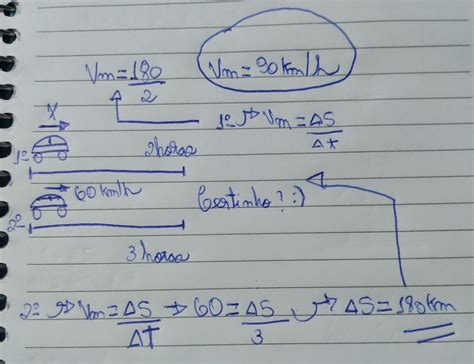 Vm = 180/2
Vm = 90 km/h
1º → Vm = ΔS/Δt
X
1º
2 horas
60 km/h
Certinho? :)
2º
3 horas
2º → Vm = ΔS/ΔT → 60 = ΔS/3 → ΔS = 180 km